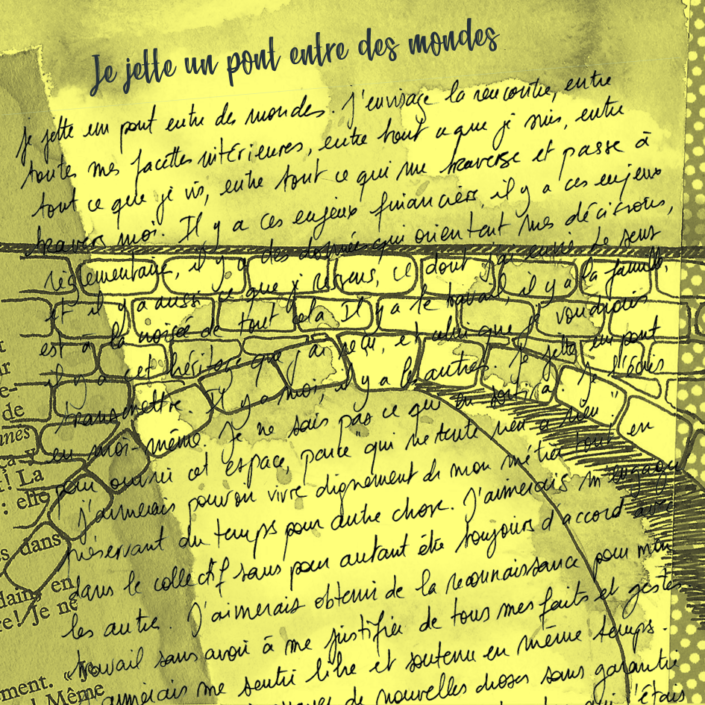 Je jette un pont entre des mondes
Je jette un pont entre des mondes. J'envisage la rencontre, entre
toutes mes facettes intérieures, entre tout ce que je suis, entre
tout ce que je vis, entre tout ce qui me traverse et passe à
travers moi. Il y a ces enjeux financiers, il y a ces enjeux
réglementaires, il y a des données qui orientent mes décisions,
et il y a aussi ce que je ressens, ce dont j'ai envie. Le sens
est à la de tout cela. Il y a le travail, il y a la famille,
il y a cet héritage que j'ai reçu, et celui que je voudrais
transmettre. Il y a moi, il y a les autres. Je jette un pont
en moi-même. Je ne sais pas ce qu'il en sortira. Je l'écris
pour ouvrir cet espace, parce "qui ne tente rien n'a rien".
J'aimerais pouvoir vivre dignement de mon métier tout en
préservant du temps pour autre chose. J'aimerais m'engager
dans le collectif sans pour autant être toujours d'accord avec
les autres. J'aimerais obtenir de la reconnaissance pour mon
travail sans avoir à me justifier de tous mes faits et gestes.
J'aimerais me sentir libre et soutenue en même temps.
de nouvelles choses sans garantie
j'étais
de
mes
! La
: elle
s dans
dans en
re! Je ne
ment.
Même